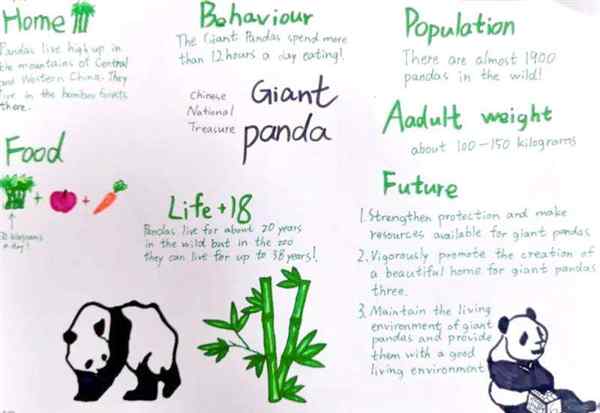 Home
Pandas live high up in
the mountains of Central
and Western China. They
live in the bamboo forests
there.
Behaviour
The Giant Pandas spend more
than 12 hours a day eating!
Chinese
National
Treasure
Giant
panda
Population
There are almost 1900
pandas in the wild!
Aadult weight
about 100-150 kilograms
Food
+ +
kilograms
a day!
Life +18
Pandas live for about 20 years
in the wild but in the zoo
they can live for up to 38 years!
Future
1. Strengthen protection and make
resources available for giant pandas
2. Vigorously promote the creation of
a beautiful home for giant pandas
three.
3. Maintain the living
environment of giant
pandas and provide
them with a good
living environment